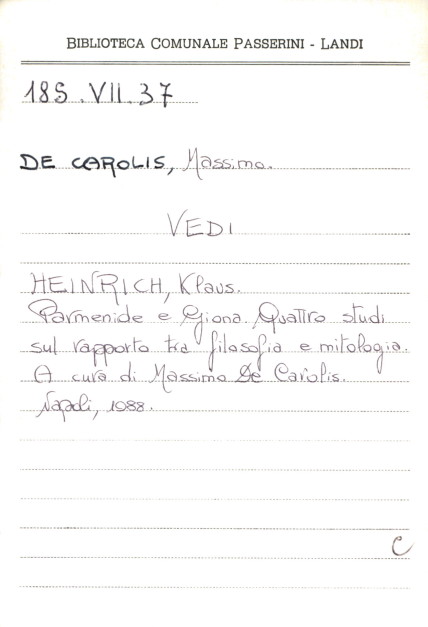 BIBLIOTECA COMUNALE PASSERINI - LANDI
185.VII.37
DE CAROLIS, Massimo.
VEDI
HEINRICH, Klaus.
Parmenide e Giona. Quattro studi
sul rapporto tra filosofia e mitologia.
A cura di Massimo De Carolis.
Napoli, 1988.
C